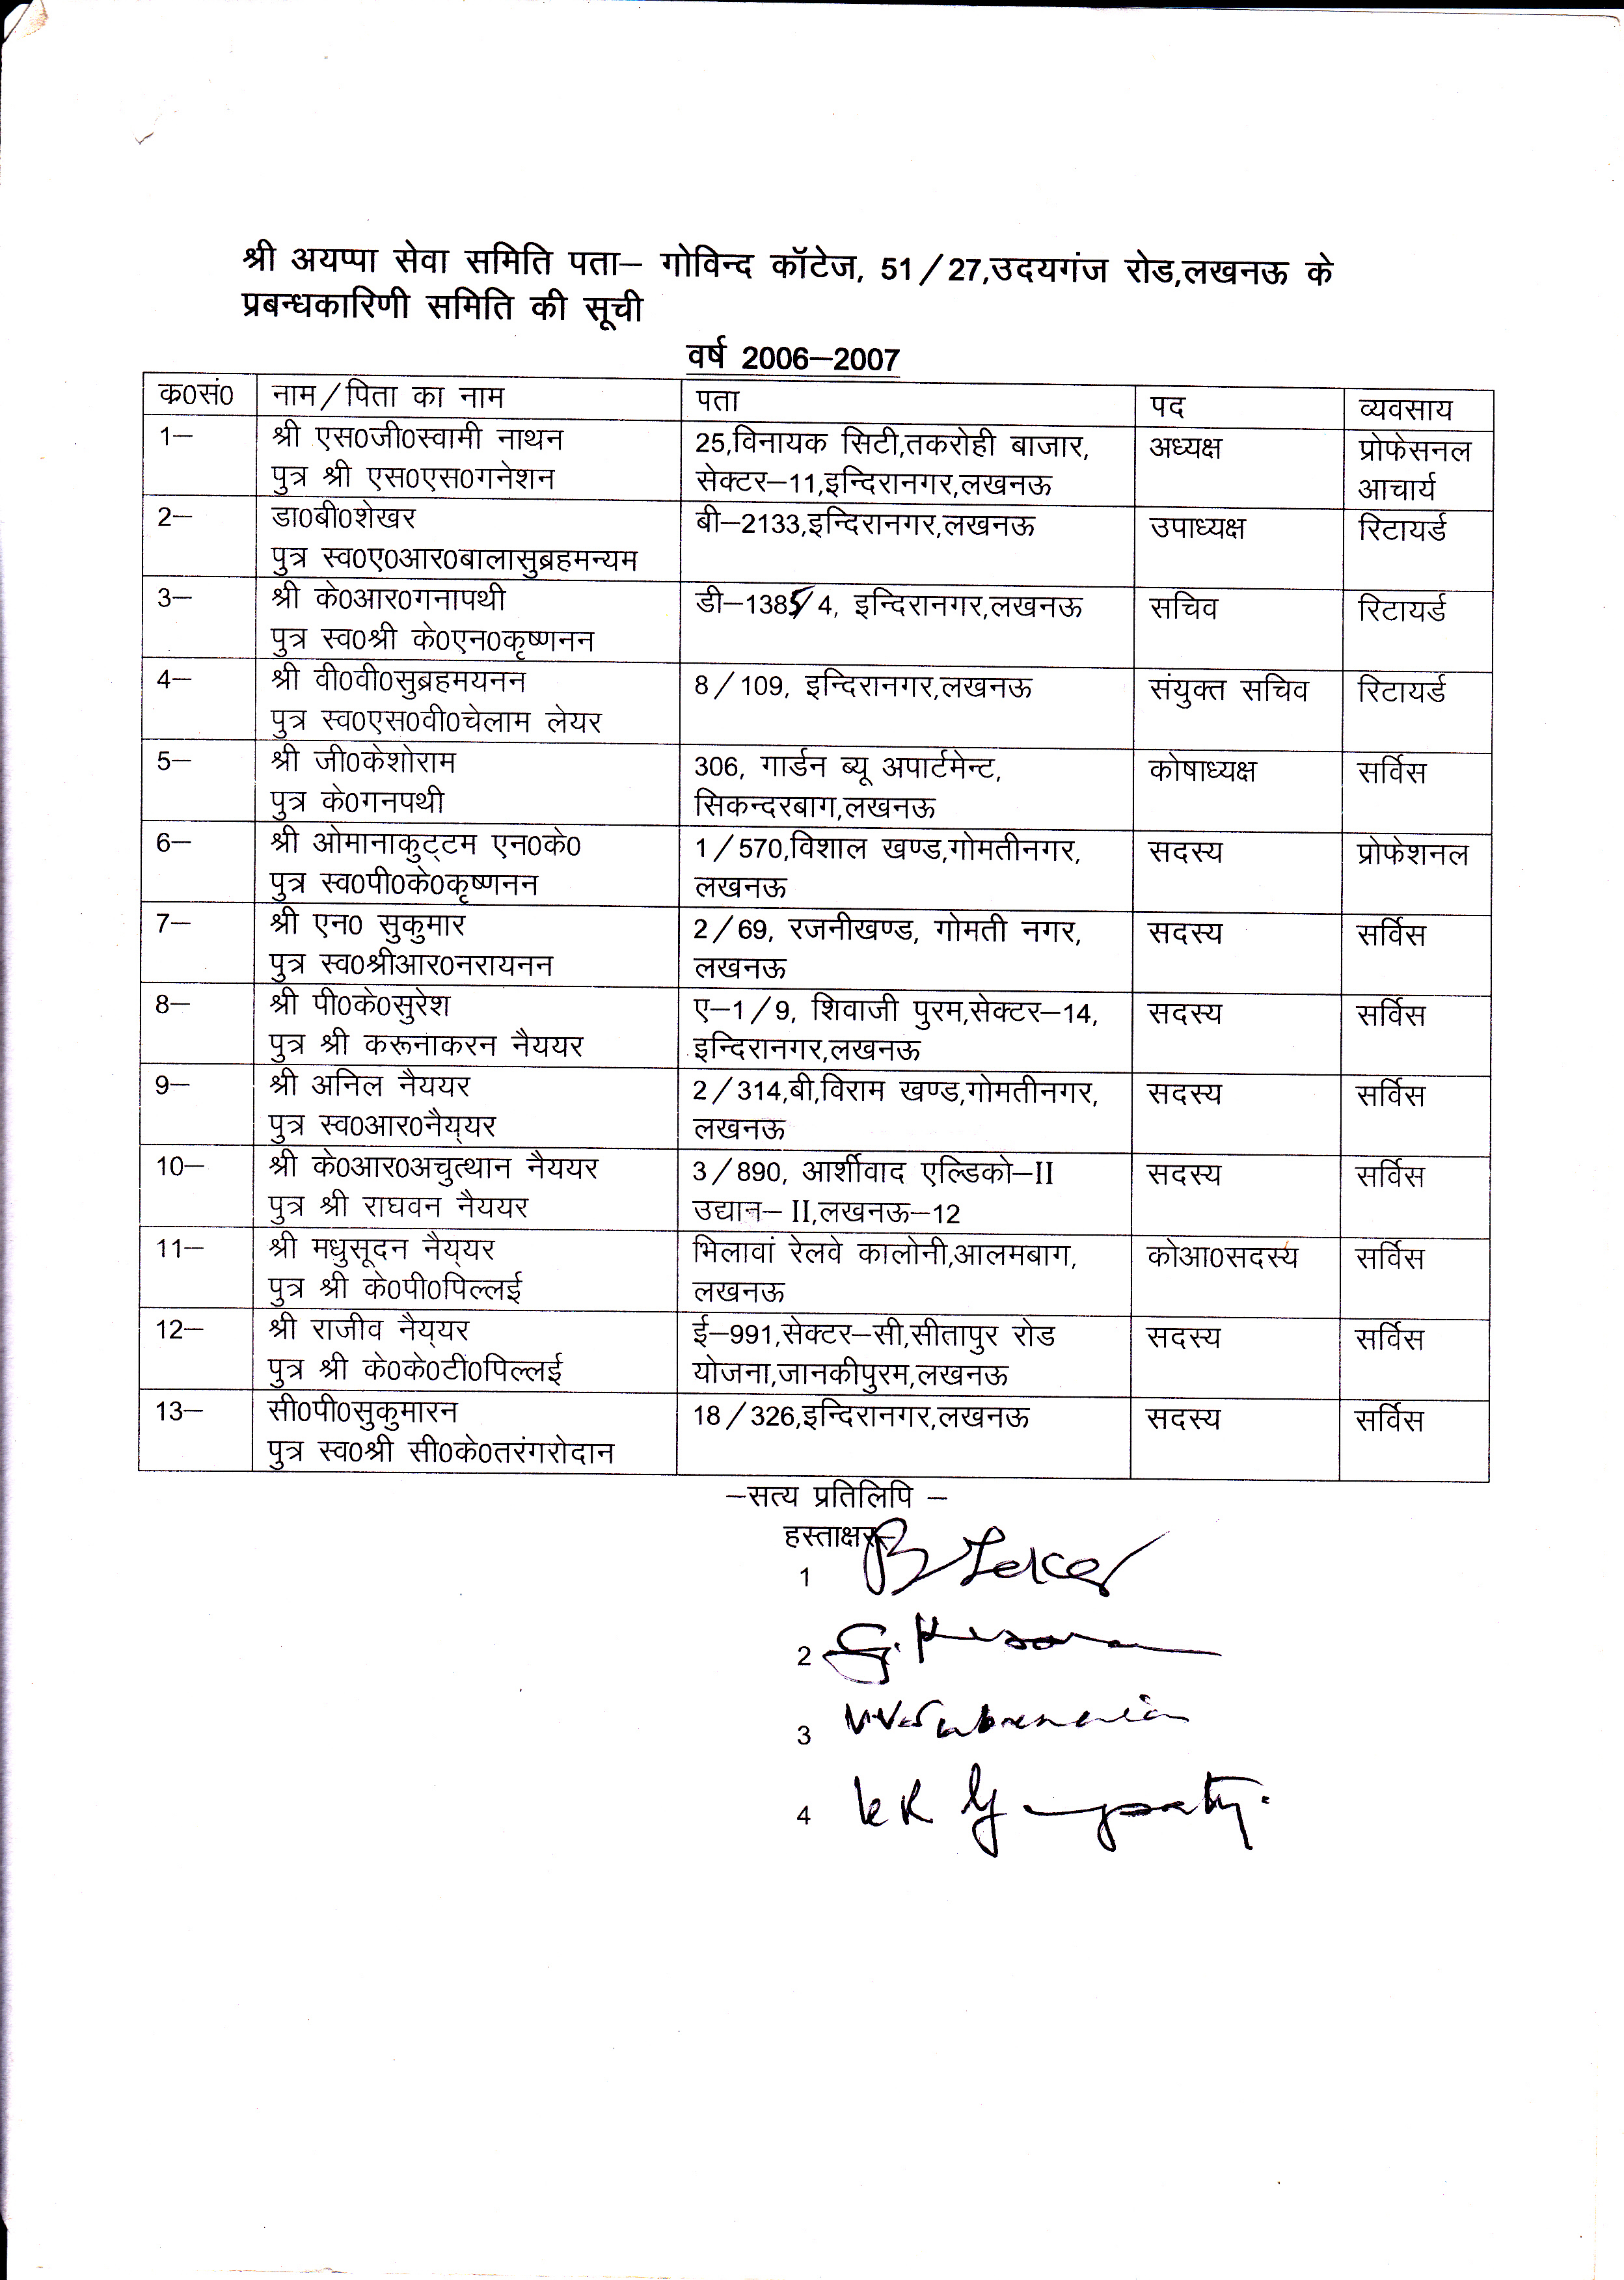 श्री अयप्पा सेवा समिति पता– गोविन्द कॉटेज, 51/27,उदयगंज रोड,लखनऊ के
प्रबन्धकारिणी समिति की सूची
वर्ष 2006–2007
क0सं0 नाम/पिता का नाम पता पद व्यवसाय
1– श्री एस0जी0स्वामी नाथन 25,विनायक सिटी,तकरोही बाजार, अध्यक्ष प्रोफेसनल
पुत्र श्री एस0एस0गनेशन सेक्टर–11,इन्दिरानगर,लखनऊ आचार्य
2– डा0बी0शेखर बी–2133,इन्दिरानगर,लखनऊ उपाध्यक्ष रिटायर्ड
पुत्र स्व0ए0आर0बालासुब्रहमन्यम
3– श्री के0आर0गनापथी डी–1385/4, इन्दिरानगर,लखनऊ सचिव रिटायर्ड
पुत्र स्व0श्री के0एन0कृष्णनन
4– श्री वी0वी0सुब्रहमयनन 8/109, इन्दिरानगर,लखनऊ संयुक्त सचिव रिटायर्ड
पुत्र स्व0एस0वी0चेलाम लेयर
5– श्री जी0केशोराम 306, गार्डन ब्यू अपार्टमेन्ट, कोषाध्यक्ष सर्विस
पुत्र के0गनपथी सिकन्दरबाग,लखनऊ
6– श्री ओमानाकुट्टम एन0के0 1/570,विशाल खण्ड,गोमतीनगर, सदस्य प्रोफेशनल
पुत्र स्व0पी0के0कृष्णनन लखनऊ
7– श्री एन0 सुकुमार 2/69, रजनीखण्ड, गोमती नगर, सदस्य सर्विस
पुत्र स्व0श्रीआर0नरायनन लखनऊ
8– श्री पी0के0सुरेश ए–1/9, शिवाजी पुरम,सेक्टर–14, सदस्य सर्विस
पुत्र श्री करूनाकरन नैययर इन्दिरानगर,लखनऊ
9– श्री अनिल नैययर 2/314,बी,विराम खण्ड,गोमतीनगर, सदस्य सर्विस
पुत्र स्व0आर0नैय्यर लखनऊ
10– श्री के0आर0अचुत्थान नैययर 3/890, आर्शीवाद एल्डिको–II सदस्य सर्विस
पुत्र श्री राघवन नैययर उद्यान– II,लखनऊ–12
11– श्री मधुसूदन नैय्यर भिलावां रेलवे कालोनी,आलमबाग, कोआ0सदस्य सर्विस
पुत्र श्री के0पी0पिल्लई लखनऊ
12– श्री राजीव नैय्यर ई–991,सेक्टर–सी,सीतापुर रोड सदस्य सर्विस
पुत्र श्री के0के0टी0पिल्लई योजना,जानकीपुरम,लखनऊ
13– सी0पी0सुकुमारन 18/326,इन्दिरानगर,लखनऊ सदस्य सर्विस
पुत्र स्व0श्री सी0के0तरंगरोदान
–सत्य प्रतिलिपि –
हस्ताक्षर
1
2
3
4 KR